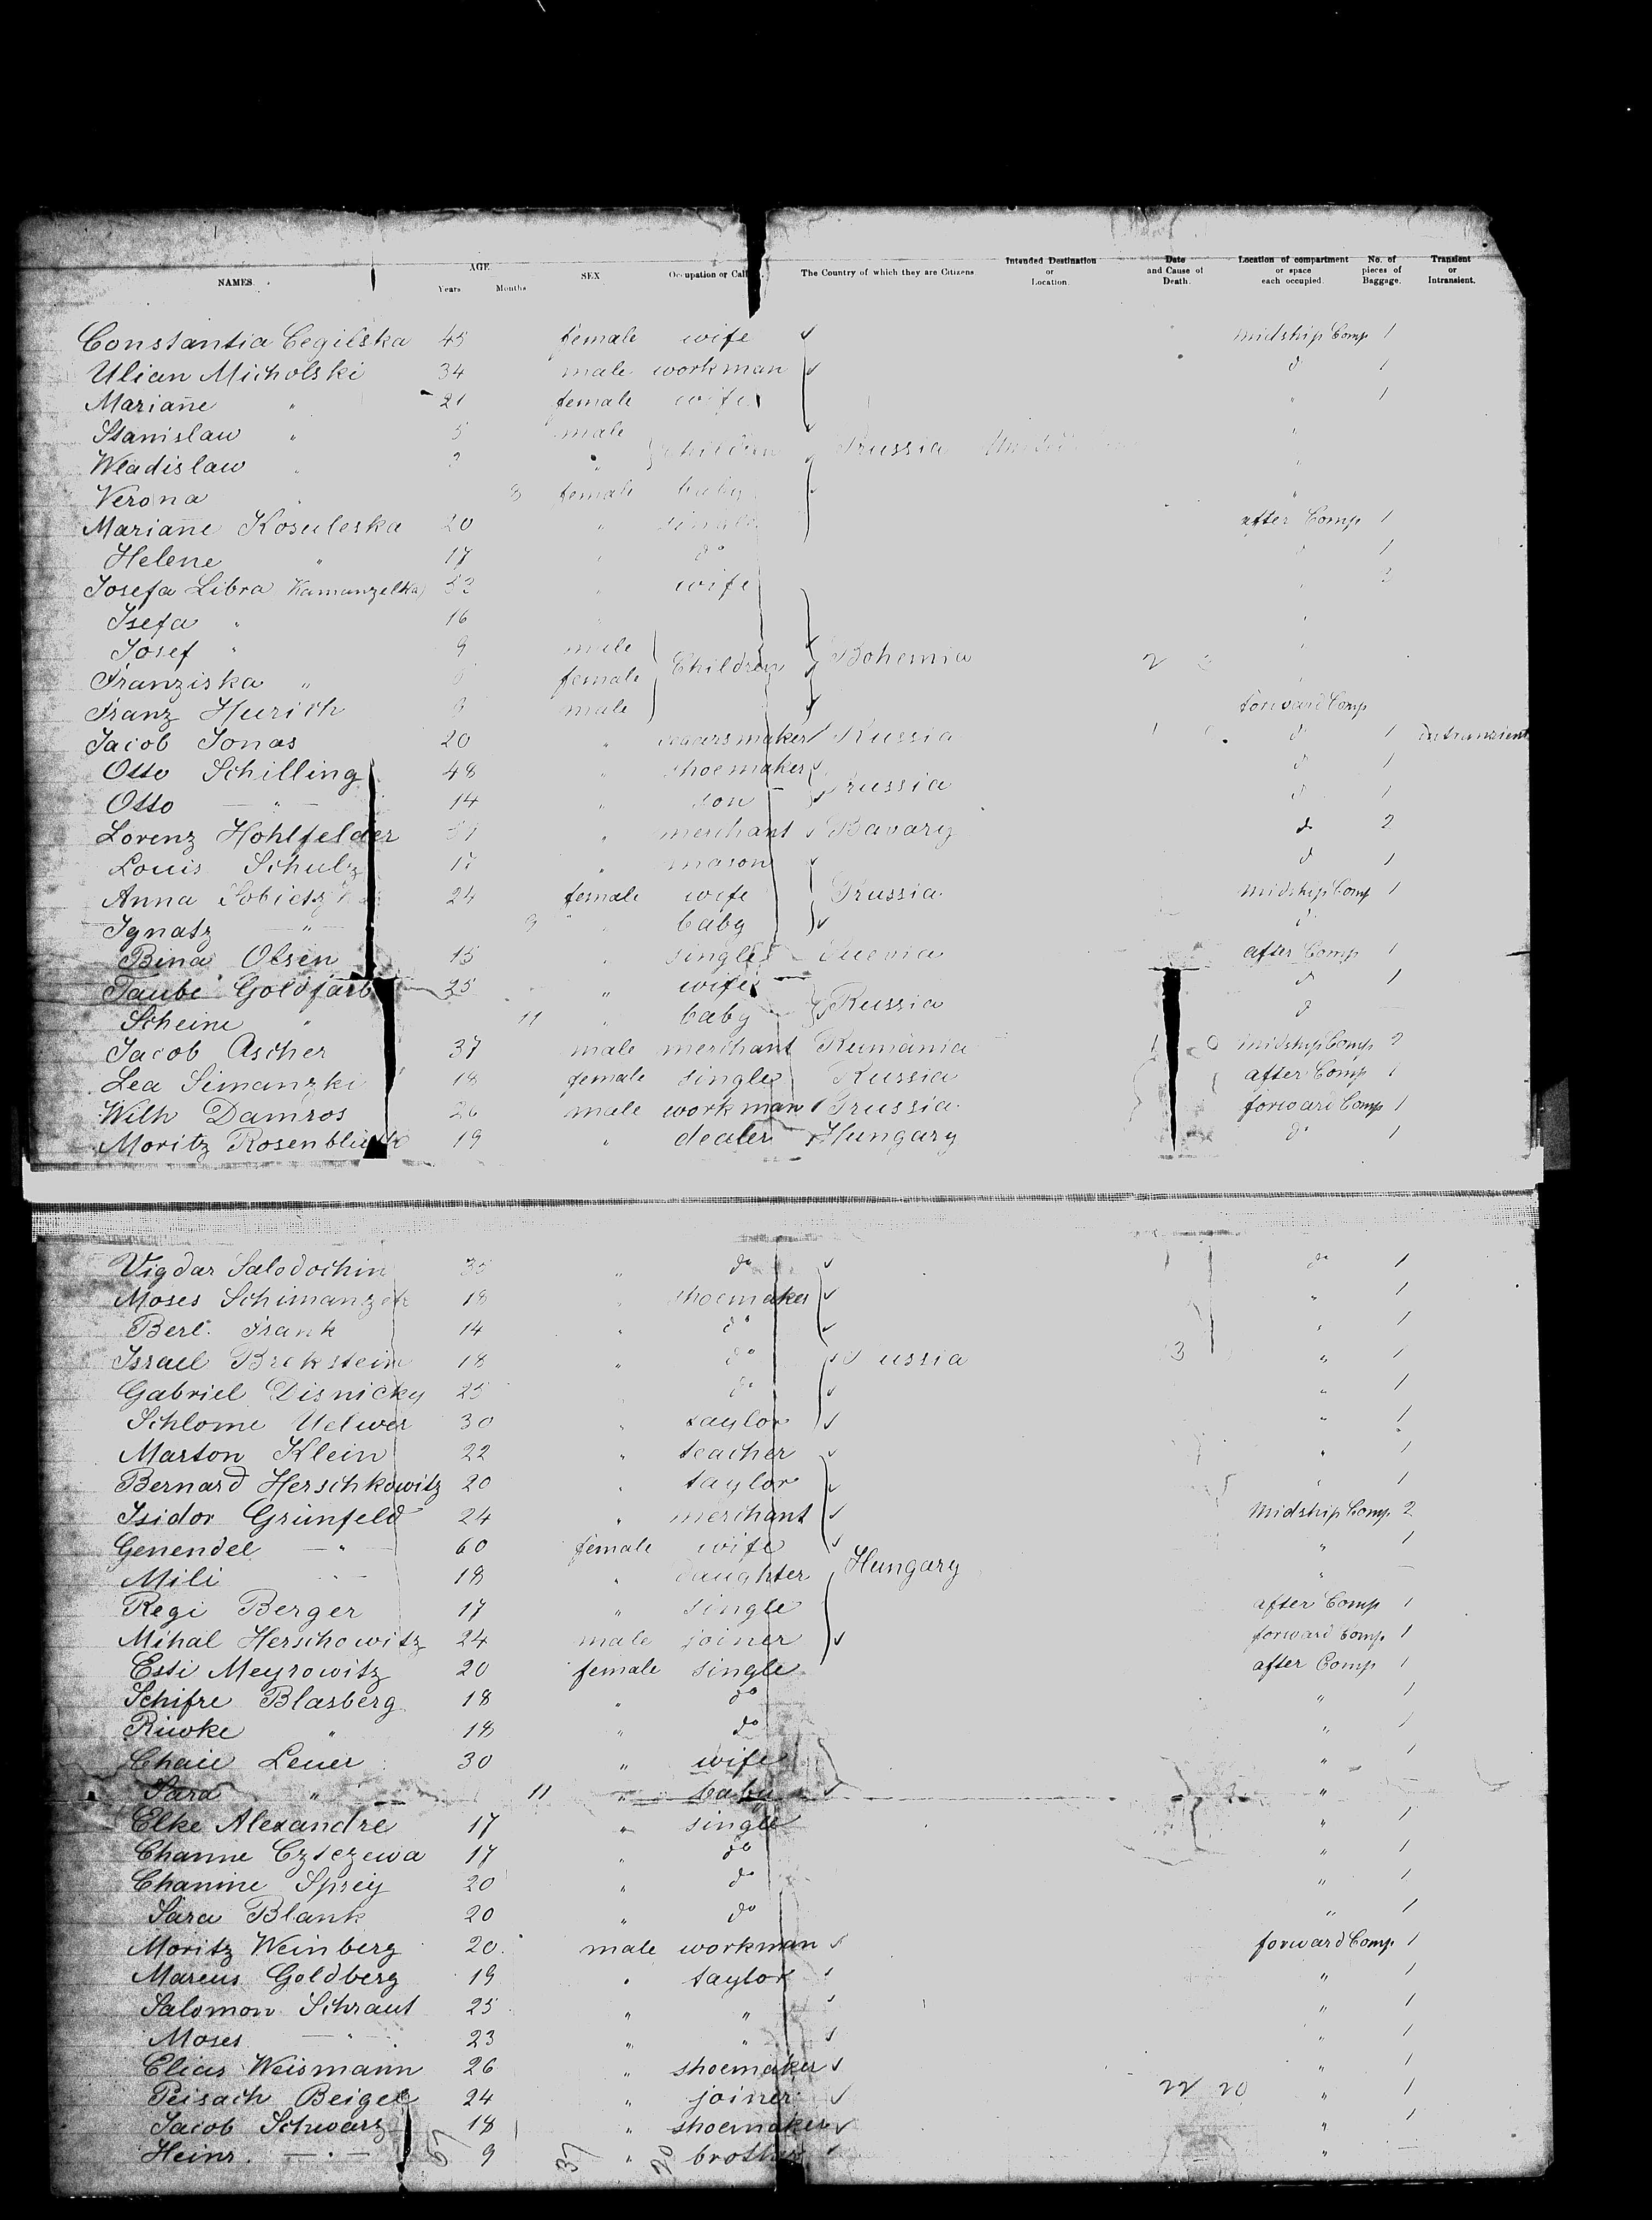 NAMES. AGE Years Months SEX Occupation or Call The Country of which they are Citizens. Intended Destination or Location. Date and Cause of Death. Location of compartment or space each occupied. No. of pieces of Baggage. Transient or Intransient.
Constantia Cegilska 45 female wife midship Comp 1
Ulian Micholski 34 male workman do 1
Mariane " 21 female wife " 1
Stanislaw " 5 male "
Wladislaw " " children Prussia "
Verona " 8 female baby "
Mariane Kosuleska 20 " single after Comp 1
Helene " 17 " do do 1
Josefa Libra Kamanzelka wife "
Isefa " 16 " "
Josef " 9 male Children Bohemia "
Franziska " female "
Franz Hurich 9 male forward Comp
Jacob Jonas 20 " Russia do 1 intranzient
Otto Schilling 48 " shoemaker do 1
Otto — " — 14 " son Prussia do 1
Lorenz Hohlfelder " merchant Bavary do 2
Louis Schulz " mason do 1
Anna 24 female wife Prussia midship Comp 1
Ignatz — " — 9 " baby do
Bina Olsen 15 " single after Comp 1
Taube Goldfarb 25 " wife do 1
Scheine " 11 " baby Russia do
Jacob Ascher 37 male merchant Rumania midship Comp 2
Lea Simanzki 18 female single Russia after Comp 1
Wilh Damros 26 male workman Prussia forward Comp 1
Moritz 19 " dealer Hungary do 1
Vigdar Salodochin 35 " do do 1
Moses 18 " shoemaker " 1
Berl. Frank 14 " do " 1
Israel Brekstein 18 " do ussia 3 " 1
Gabriel Disnicky 25 do " 1
Schlome Uelwer 30 " taylor " 1
Marton Klein 22 " teacher " 1
Bernard Herschkowitz 20 " taylor " 1
Isidor Grünfeld 24 " merchant Midship Comp. 2
Genendel — " — 60 female wife " 1
Mili — " — 18 " daughter Hungary " —
Regi Berger 17 " single after Comp 1
Mihal Herschowitz 24 male joiner forward Comp. 1
Esti Meyrowitz 20 female single after Comp 1
Schifre Blasberg 18 " do " 1
Riwke " 18 " do " 1
Chaie Leuer 30 " wife " 1
Sara " 11 " baby " —
Elke Alexandre 17 " single " 1
Channe Czsczewa 17 " do " 1
Chanine Sprey 20 " do " 1
Sara Blank 20 " do " 1
Moritz Weinberg 20 male workman forward Comp. 1
Marcus Goldberg 19 " taylor " 1
Salomon Schraut 25 " " " 1
Moses — " — 23 " " " 1
Elias Weismann 26 " shoemaker " 1
Peisach Beigel 24 " joiner 22 20 " 1
Jacob Schwarz 18 " shoemaker " 1
Heinr. — " — 9 " brother " —
57 37 20